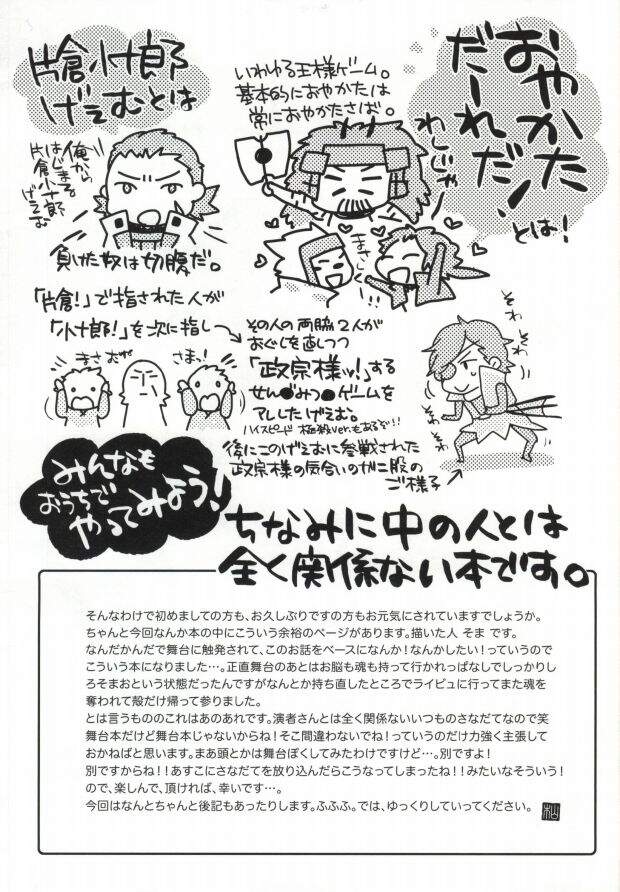 おやかた
だーれだ!
とは!
いわゆる王様ゲーム。
基本的におやかたは
常におやかたさば。
わしじゃ
まさむ
く!!
片倉小十郎
げえむとは
俺から
はじまる
片倉小十郎
げえむ
負けた奴は切腹だ。
「片倉!」で指された人が
「小十郎!」を次に指し
まさむね
さま!
その人の両脇2人が
おぐしを直しつつ
「政宗様ッ!」する
せん●みつ●ゲームを
アレしたげえむ。
ハイスピード 極殺ver.もあるぞ!!
後にこのげえむに参戦された
政宗様の気合いのガニ股の
ご様子
そわ
そわ
そわ
そわ
みんなも
おうちで
やってみよう!
ちなみに中の人とは
全く関係ない本です。
そんなわけで初めましての方も、お久しぶりですの方もお元気にされていますでしょうか。
ちゃんと今回なんか本の中にこういう余裕のページがあります。描いた人 そま です。
なんだかんだで舞台に触発されて、このお話をベースになんか!なんかしたい!っていうので
こういう本になりました…。正直舞台のあとはお脳も魂も持って行かれっぱなしでしっかりし
ろそまおという状態だったんですがなんとか持ち直したところでライビュに行ってまた魂を
奪われて殻だけ帰って参りました。
とは言うもののこれはあのあれです。演者さんとは全く関係ないいつものさなだてなので笑
舞台本だけど舞台本じゃないからね!そこ間違わないでね!っていうのだけ力強く主張して
おかねばと思います。まあ頭とかは舞台ぽくしてみたわけですけど…。別ですよ!
別ですからね!!あすこにさなだてを放り込んだらこうなってしまったね!!みたいなそういう!
ので、楽しんで、頂ければ、幸いです…。
今回はなんとちゃんと後記もあったりします。ふふふ。では、ゆっくりしていってください。